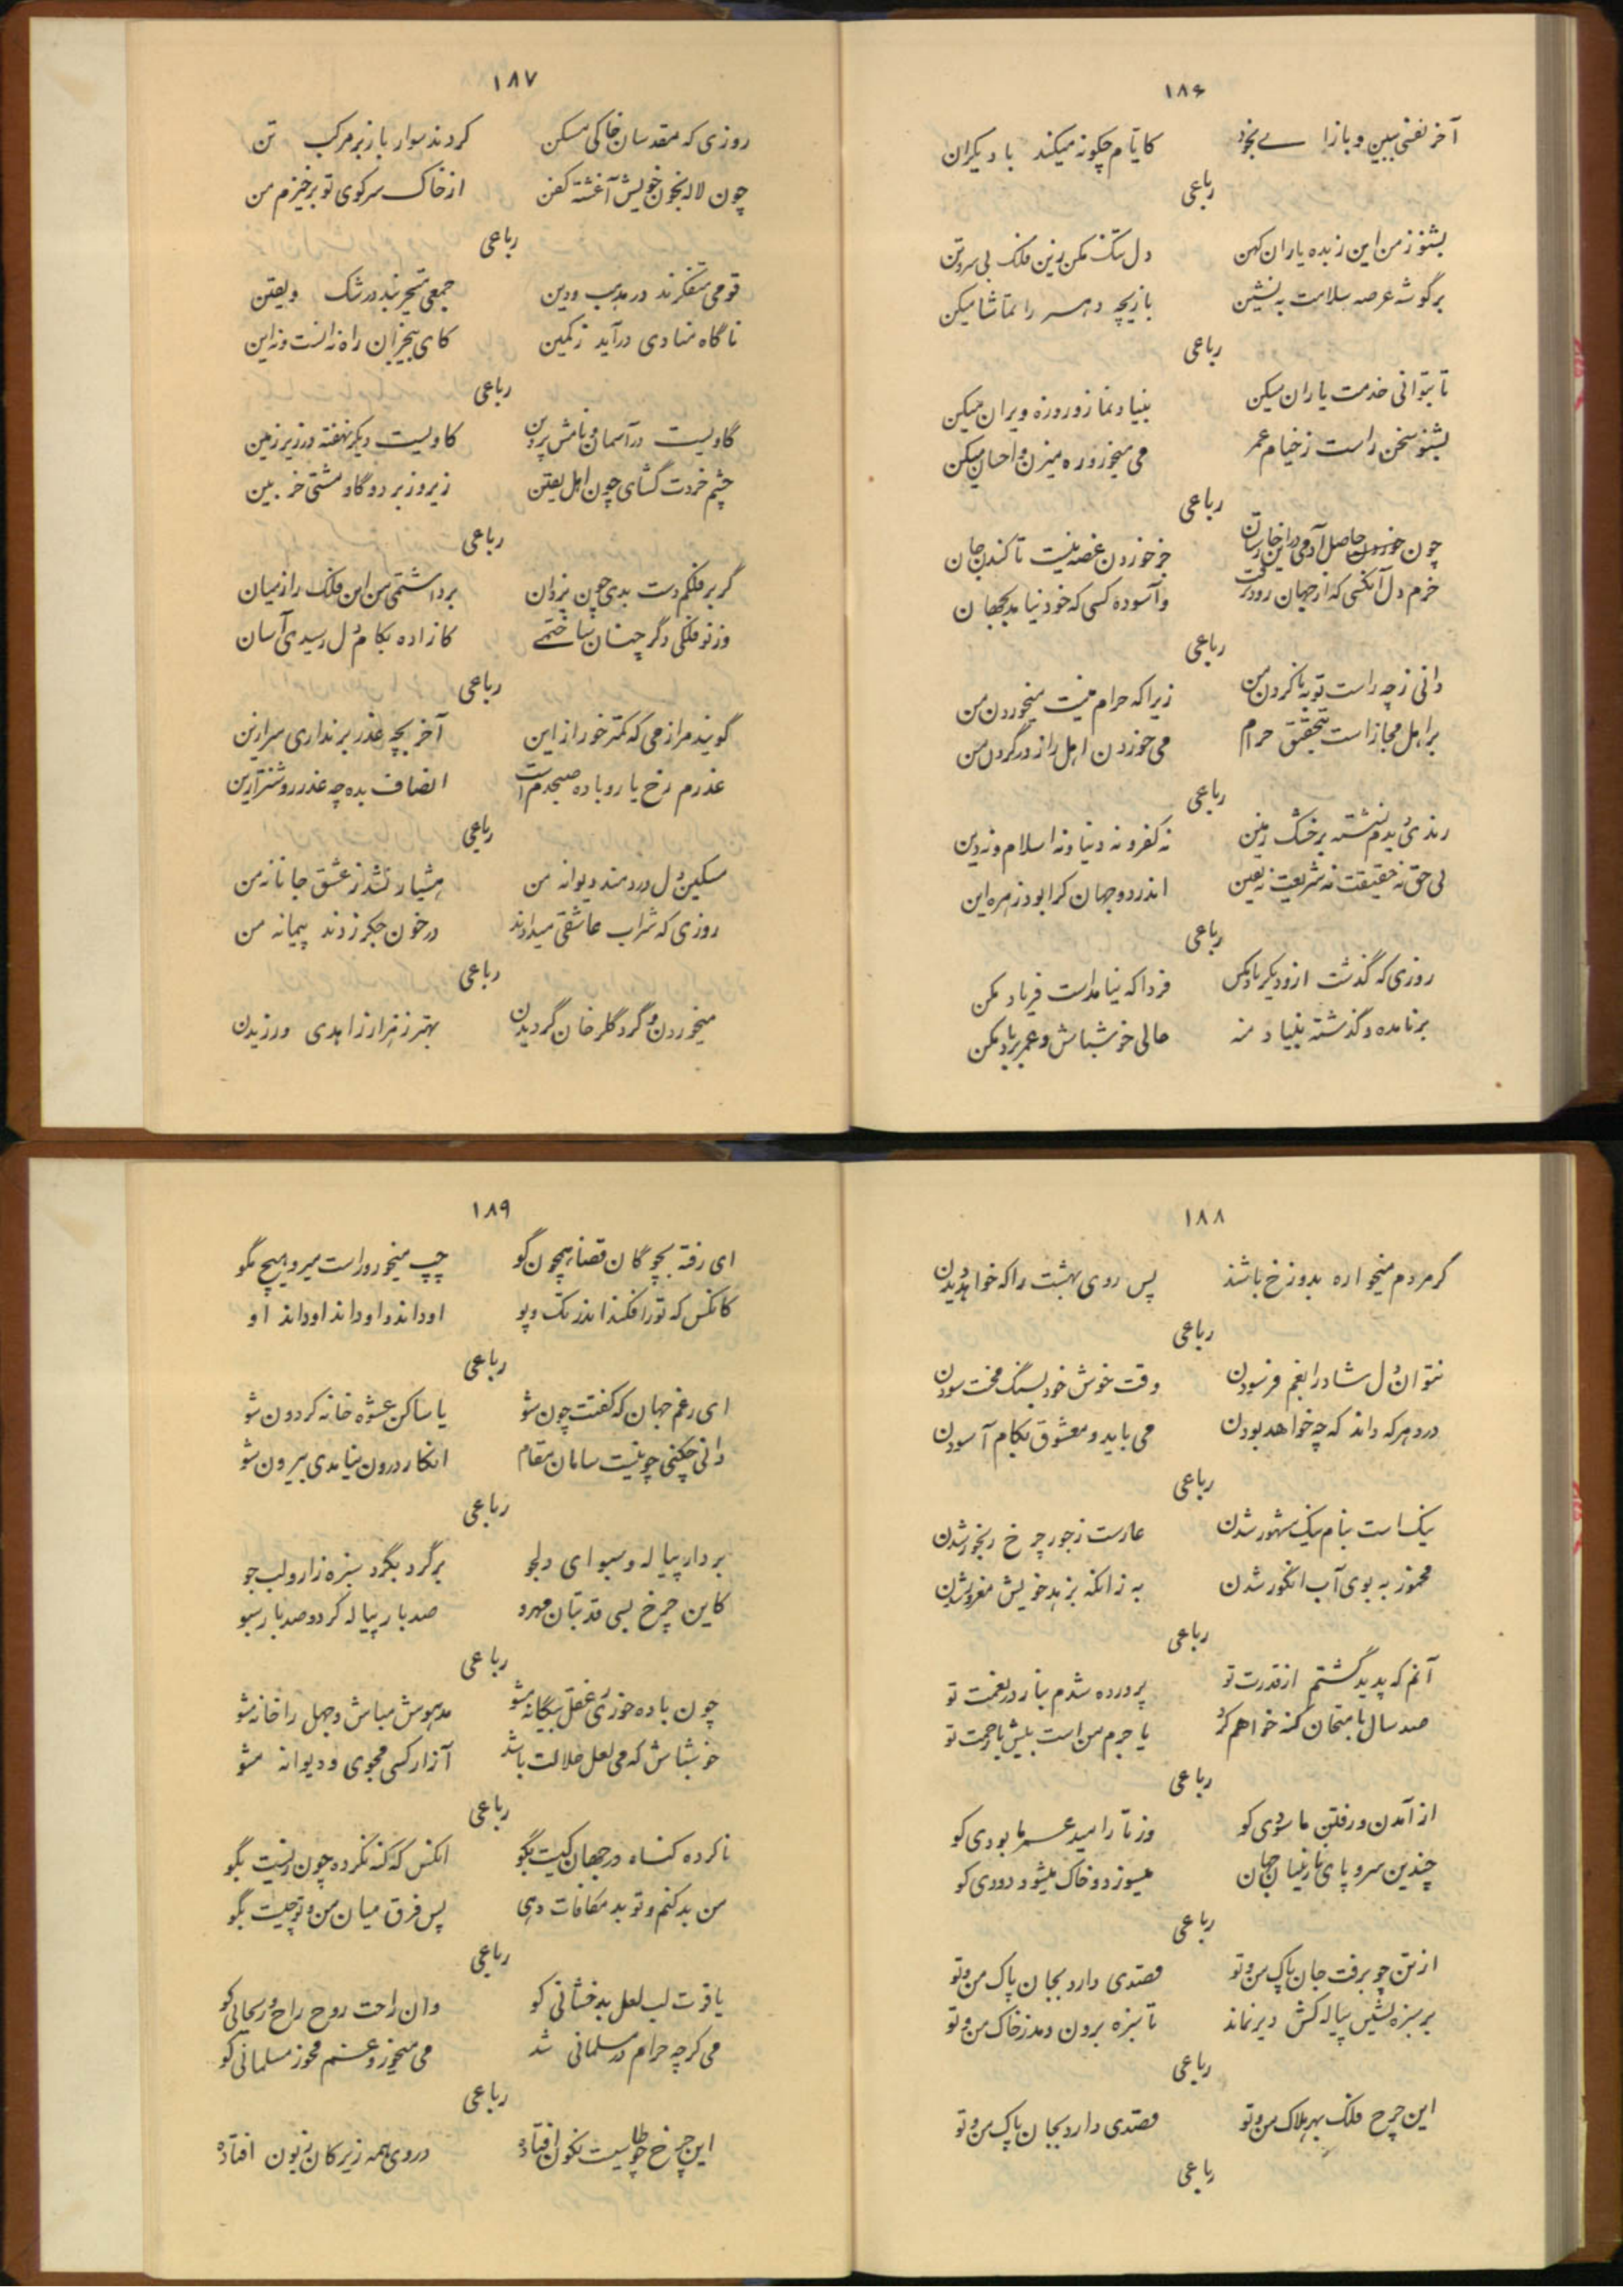 ۱۸۶
آخر نفسی ببین و بازا بی بخود
کایام چگونه میکند با دیگران
رباعی
بشنو ز من این زبده یاران کهن
دل تنگ مکن زین فلک بی سر و بن
بر گوشه عرصه سلامت به نشین
بازیچه دهر را تماشا میکن
رباعی
تا بتوانی خدمت یاران میکن
بنیاد نماز و روزه ویران میکن
بشنو سخن راست ز خیام عمر
می میخور و ره میزن و احسان میکن
رباعی
چون حاصل آدمی در این خارستان
جز خوردن غصه نیست تا کندن جان
خرم دل آنکسی که از جهان زود برفت
وآسوده کسی که خود نیامد بجهان
رباعی
دانی ز چه راست توبه نا کردن من
زیرا که حرام نیست میخوردن من
بر اهل مجاز است بتحقیق حرام
می خوردن اهل راز در گردن من
رباعی
رندی دیدم نشسته بر خشک زمین
نه کفر و نه دنیا و نه اسلام و نه دین
نی حق نه حقیقت نه شریعت نه یقین
اندر دو جهان کرا بود زهره این
رباعی
روزی که گذشت ازو دیگر یاد مکن
فردا که نیامدست فریاد مکن
بر نامده و گذشته بنیاد منه
حالی خوشباش و عمر بر باد مکن
۱۸۷
روزی که مقدسان خاکی مسکن
کردند سوار باز بر مرکب تن
چون لاله بخون خویش آغشته کفن
از خاک سر کوی تو برخیزم من
رباعی
قومی متفکرند در مذهب و دین
جمعی متحیرند در شک و یقین
ناگاه منادی درآید ز کمین
کای بیخبران راه نه انست و نه این
رباعی
گاویست در آسمان و نامش پروین
گاویست دیگر نهفته در زیر زمین
چشم خردت گشای چون اهل یقین
زیر و زبر دو گاو مشتی خر بین
رباعی
گر بر فلکم دست بدی چون یزدان
برداشتمی من این فلک را ز میان
وز نو فلکی دگر چنان ساختمی
کازاده بکام دل رسیدی آسان
رباعی
گویند مرا ز می که کمتر خور از این
آخر بچه عذر بر نداری سر ازین
عذرم رخ یار و باده صبحدم است
انصاف بده چه عذر روشنتر ازین
رباعی
مسکین دل دردمند دیوانه من
هشیار نشد ز عشق جانانه من
روزی که شراب عاشقی میدادند
در خون جگر زدند پیمانه من
رباعی
میخوردن و گرد گلرخان گردیدن
بهتر ز هزار زاهدی ورزیدن
۱۸۸
گر مردم میخواره بدوزخ باشند
پس روی بهشت را که خواهد دیدن
رباعی
نتوان دل شاد را بغم فرسودن
وقت خوش خود بسنگ محنت سودن
در دهر که داند که چه خواهد بودن
می باید و معشوق بکام آسودن
رباعی
نیک است بنام نیک مشهور شدن
عارست ز جور چرخ رنجور شدن
مخمور به بوی آب انگور شدن
به زانکه بزهد خویش مغرور شدن
رباعی
آنم که پدید گشتم از قدرت تو
پرورده شدم بناز در نعمت تو
صد سال بامتحان گنه خواهم کرد
یا جرم من است بیش یا رحمت تو
رباعی
از آمدن و رفتن ما سودی کو
وز تار امید عمر ما بودی کو
چندین سر و پای نازنینان جهان
میسوزد و خاک میشود دودی کو
رباعی
از تن چو برفت جان پاک من و تو
قصدی دارد بجان پاک من و تو
بر سبزه نشین پیاله کش دیر نماند
تا سبزه برون دمد ز خاک من و تو
رباعی
این چرخ فلک بهر هلاک من و تو
قصدی دارد بجان پاک من و تو
رباعی
۱۸۹
ای رفته بچوگان قضا همچون گو
چپ میخور و راست میرو و هیچ مگو
کانکس که تورا فکند اندر تک و پو
او داند و او داند او داند او
رباعی
ای رغم جهان که گفتت چون شو
یا ساکن عشوه خانه گردون شو
دانی چکنی چو نیست سامان مقام
انکار درون نیامدی بیرون شو
رباعی
بردار پیاله و سبو ای دلجو
برگرد بگرد سبزه زار و لب جو
کاین چرخ بسی قد بتان مهرو
صد بار پیاله کرد و صد بار سبو
رباعی
چون باده خوری ز عقل بیگانه مشو
مدهوش مباش و جهل را خانه مشو
خوشباش که می لعل حلالت باشد
آزار کسی مجوی و دیوانه مشو
رباعی
نا کرده گناه در جهان کیست بگو
انکس که گنه نکرده چون زیست بگو
من بد کنم و تو بد مکافات دهی
پس فرق میان من و تو چیست بگو
رباعی
یاقوت لب لعل بدخشانی کو
وان راحت روح راح ریحانی کو
می گرچه حرام در مسلمانی شد
می میخور و غم مخور مسلمانی کو
رباعی
این چرخ چو طاسیست نگون افتاده
در وی همه زیرکان زبون افتاده